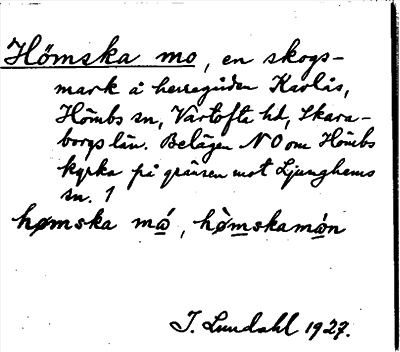 Hömska mo, en skogs-
mark å herregården Karlås,
Hömbs sn, Vartofta hd, Skara-
borgs län. Belägen NO om Hömbs
kyrka på gränsen mot Ljunghems
sn. 1
hømska mɷ́, hømskamɷ̀n
I. Lundahl 1927.